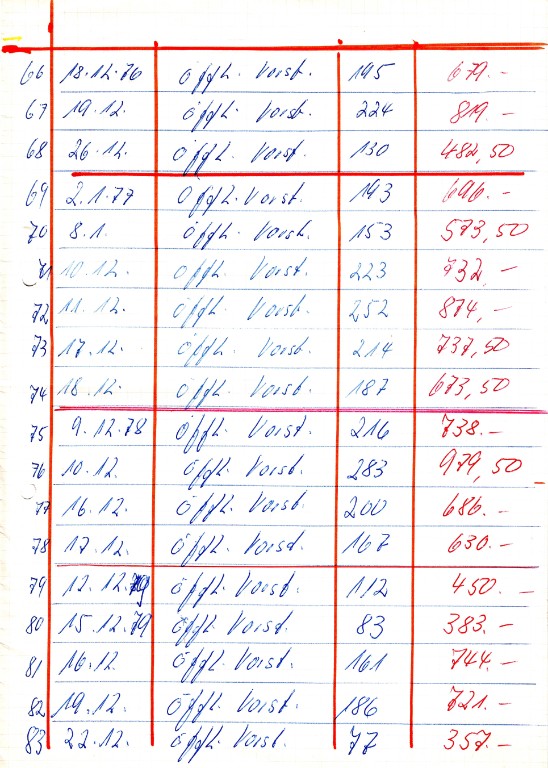 66 18.12.76 öfftl. Vorst. 195 679.-
67 19.12. öfftl. Vorst. 224 819 -
68 26.12. öfftl. Vorst. 130 482,50
69 2.1.77 öfftl. Vorst. 193 696.-
70 8.1. öfftl. Vorst. 153 573,50
71 10.12. öfftl. Vorst. 223 732,-
72 11.12. öfftl. Vorst. 252 874,-
73 17.12. öfftl. Vorst. 214 737,50
74 18.12. öfftl. Vorst. 187 673,50
75 9.12.78 öfftl. Vorst. 216 738.-
76 10.12. öfftl. Vorst. 283 979,50
77 16.12. öfftl. Vorst. 200 686.-
78 17.12. öfftl. Vorst. 167 630.-
79 12.12.79 öfftl. Vorst. 112 450.-
80 15.12.79 öfftl. Vorst. 83 383.-
81 16.12. öfftl. Vorst. 161 744.-
82 19.12. öfftl. Vorst. 186 721.-
83 22.12. öfftl. Vorst. 77 357.-